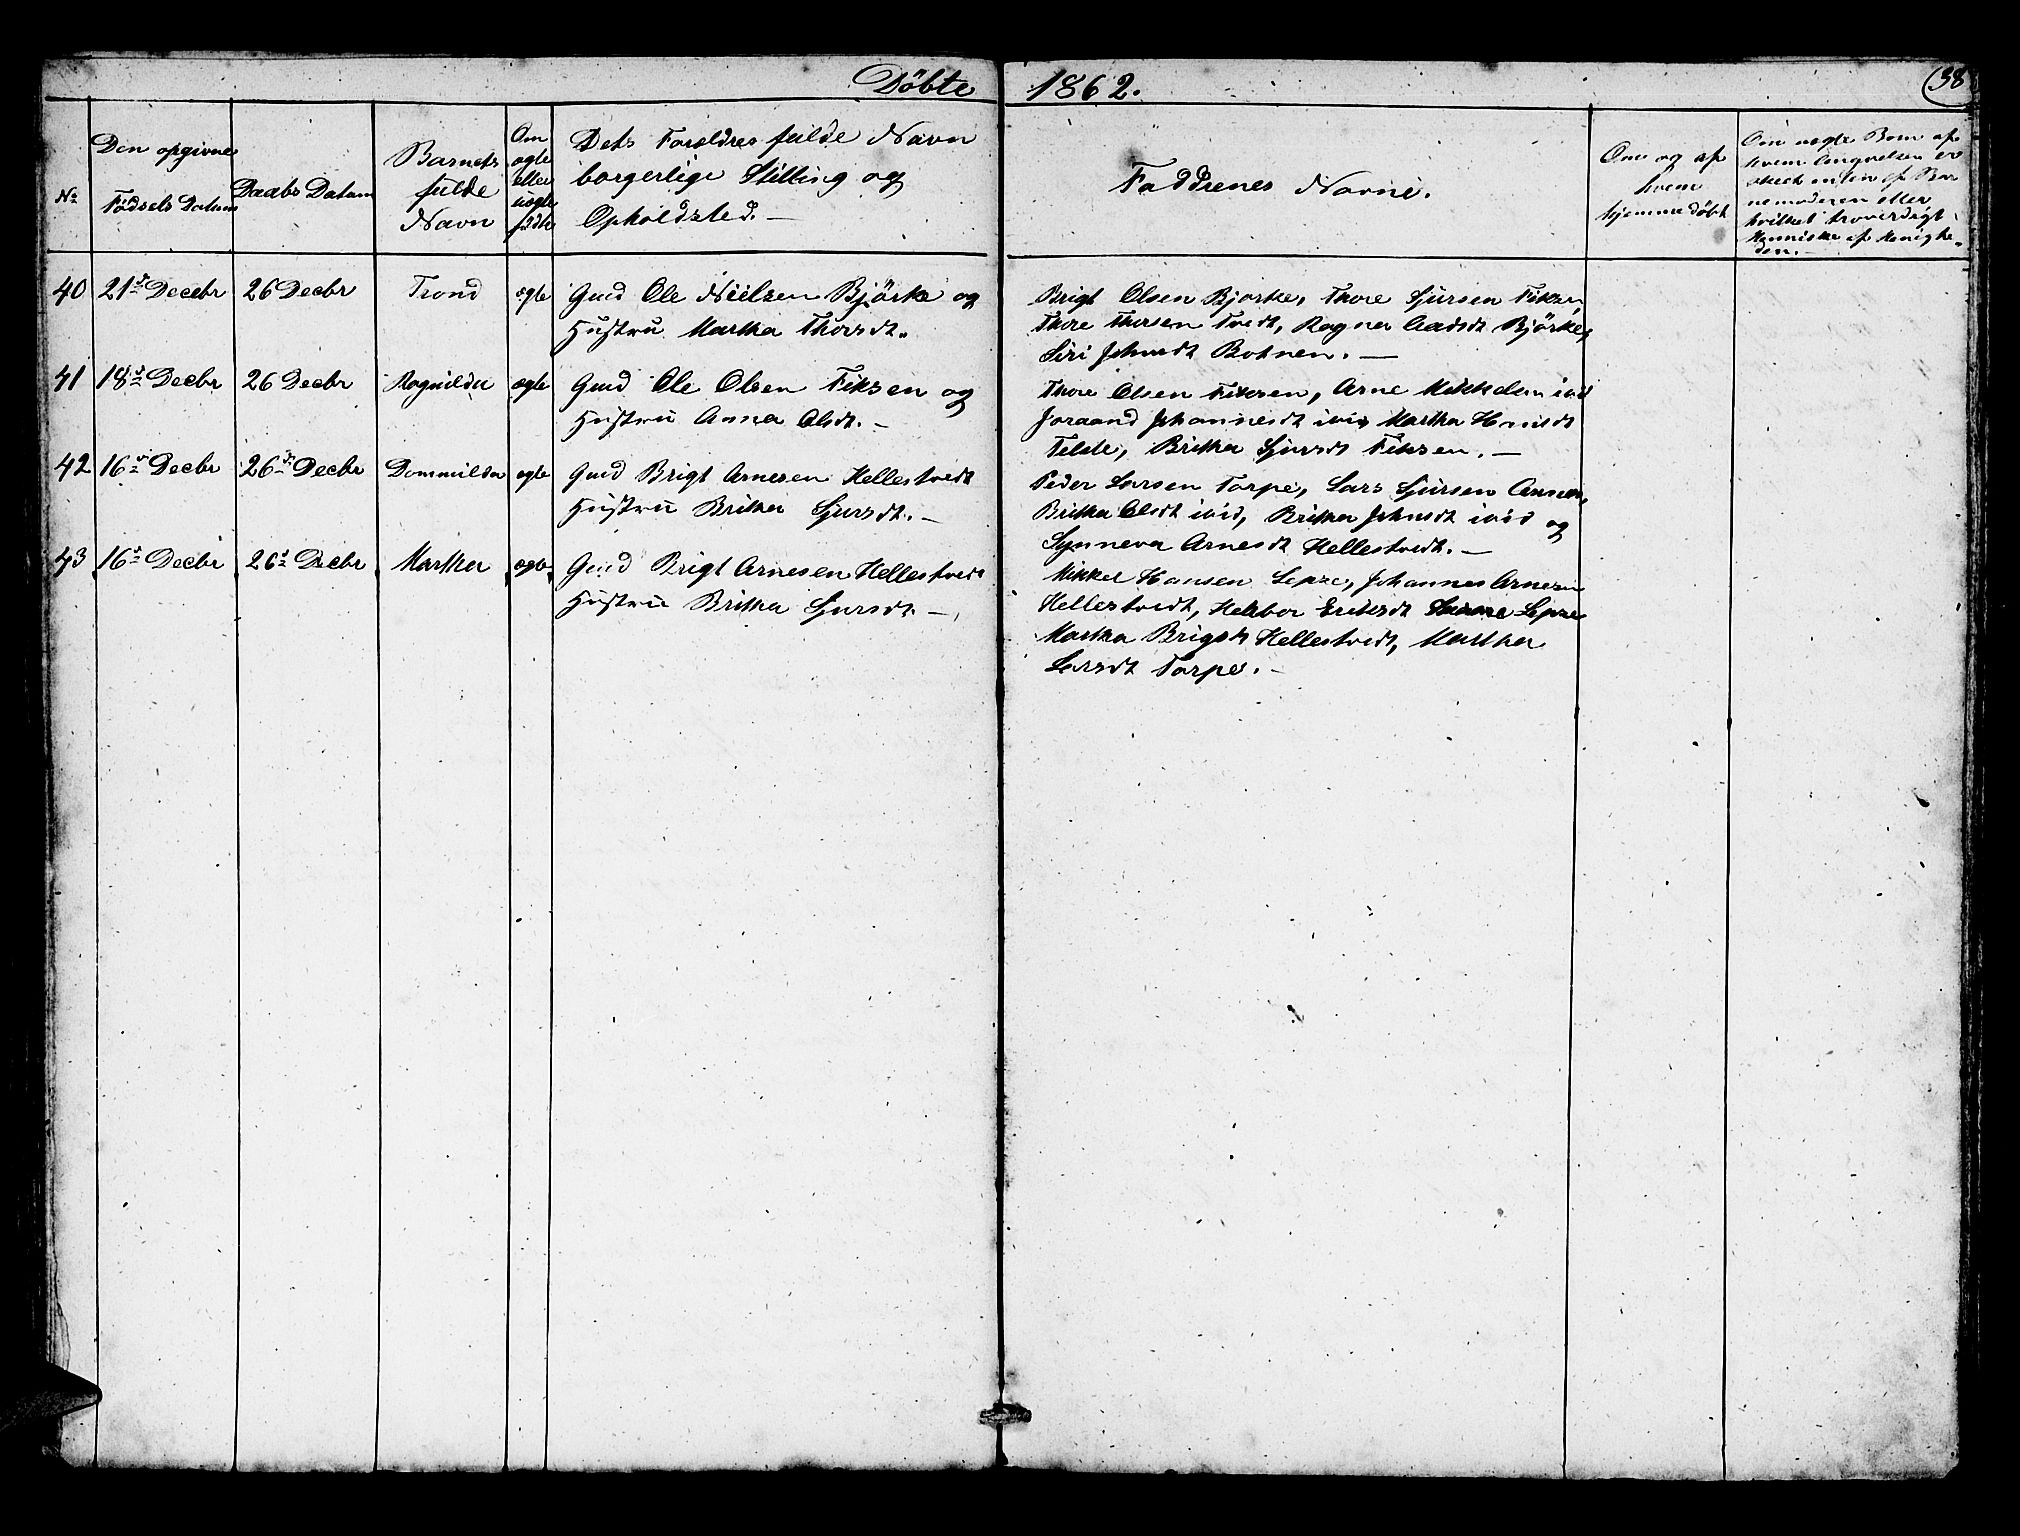 Döbte 1862. 38
No
Den opgivne
Födsels Datum
Daabs Datum
Barnets
fulde
Navn
Om
ægte
eller
uægte
födte
Dets Forældres fulde Navn
borgerlige Stilling og
Opholdsted. —
Faddrenes Navne.
Om og af
hvem
hjemmedöbt
Om uægte Barn af
hvem Angivelsen er
skeet enten af Bar
nemoderen eller
hvilket troverdigt
Menniske af Menighe-
den. —
40 21de Decebr 26 Decbr Trond ægte Gmd Ole Nielsen Björke og
Hustru Martha Thorsdt.
Brigt Olsen Bjorke, Thore Sjursen Fiksen
Thore Thorsen Tvedt, Ragna Björke,
Siri Johnsdt Botnen. —
41 18de Decbr 26 Decbr Ragnilda ægte Gmd Ole Olsen Fiksen og
Hustru Anna Olsdt. —
Thore Olsen Fiksen, Arne Mikkelsen ivid
Joraand Johannesdt ivid Martha
Britha Sjursdt Fiksen. —
42 16de Decbr 26de Decbr Dommilda ægte Gmd Brigt Arnesen Hellestvedt
Hustru Britha Sjursdt. —
Peder Larsen Torpe, Lars Sjursen
Britha Olsdt ivid, Britha Johnsdt ivid og
Synneva Arnesdt Hellestvedt. —
43 16de Decbr 26de Decbr Martha ægte Gmd Brigt Arnesen Hellestvedt
Hustru Britha Sjursdt. —
Mikkel Hansen Sepze, Johannes Arnesen
Hellestvedt, Eriksdt Sepze
Martha Brigtsdt Hellestvedt, Martha
Larsdt Torpe. —